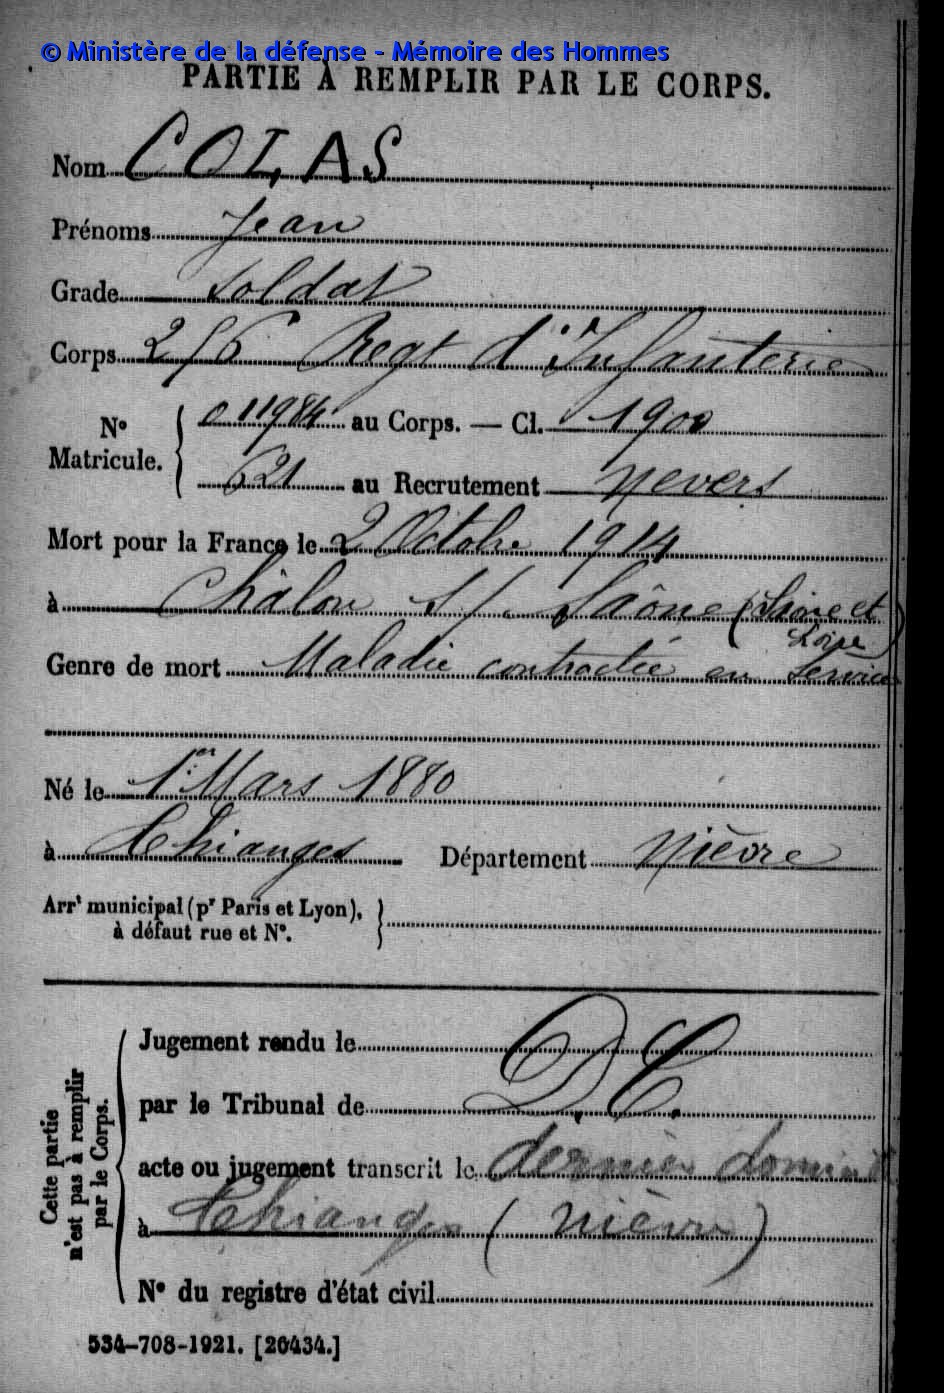 © Ministère de la défense - Mémoire des Hommes
PARTIE À REMPLIR PAR LE CORPS.
Nom COLAS
Prénoms Jean
Grade Soldat
Corps 256 Regt d'Infanterie
Nº Matricule. 011984 au Corps. — Cl. 1900
621 au Recrutement Nevers
Mort pour la France le 2 Octobre 1914
à Châlon s/ Saône (Saône et Loire)
Genre de mort Maladie contractée en Service
Né le 1er Mars 1880
à Thianges Département Nièvre
Arrt municipal (pr Paris et Lyon), à défaut rue et Nº.
Cette partie n'est pas à remplir par le Corps.
Jugement rendu le
par le Tribunal de D.C.
acte ou jugement transcrit le dernier domicile
à Thianges (Nièvre)
Nº du registre d'état civil
534-708-1921. [26434.]